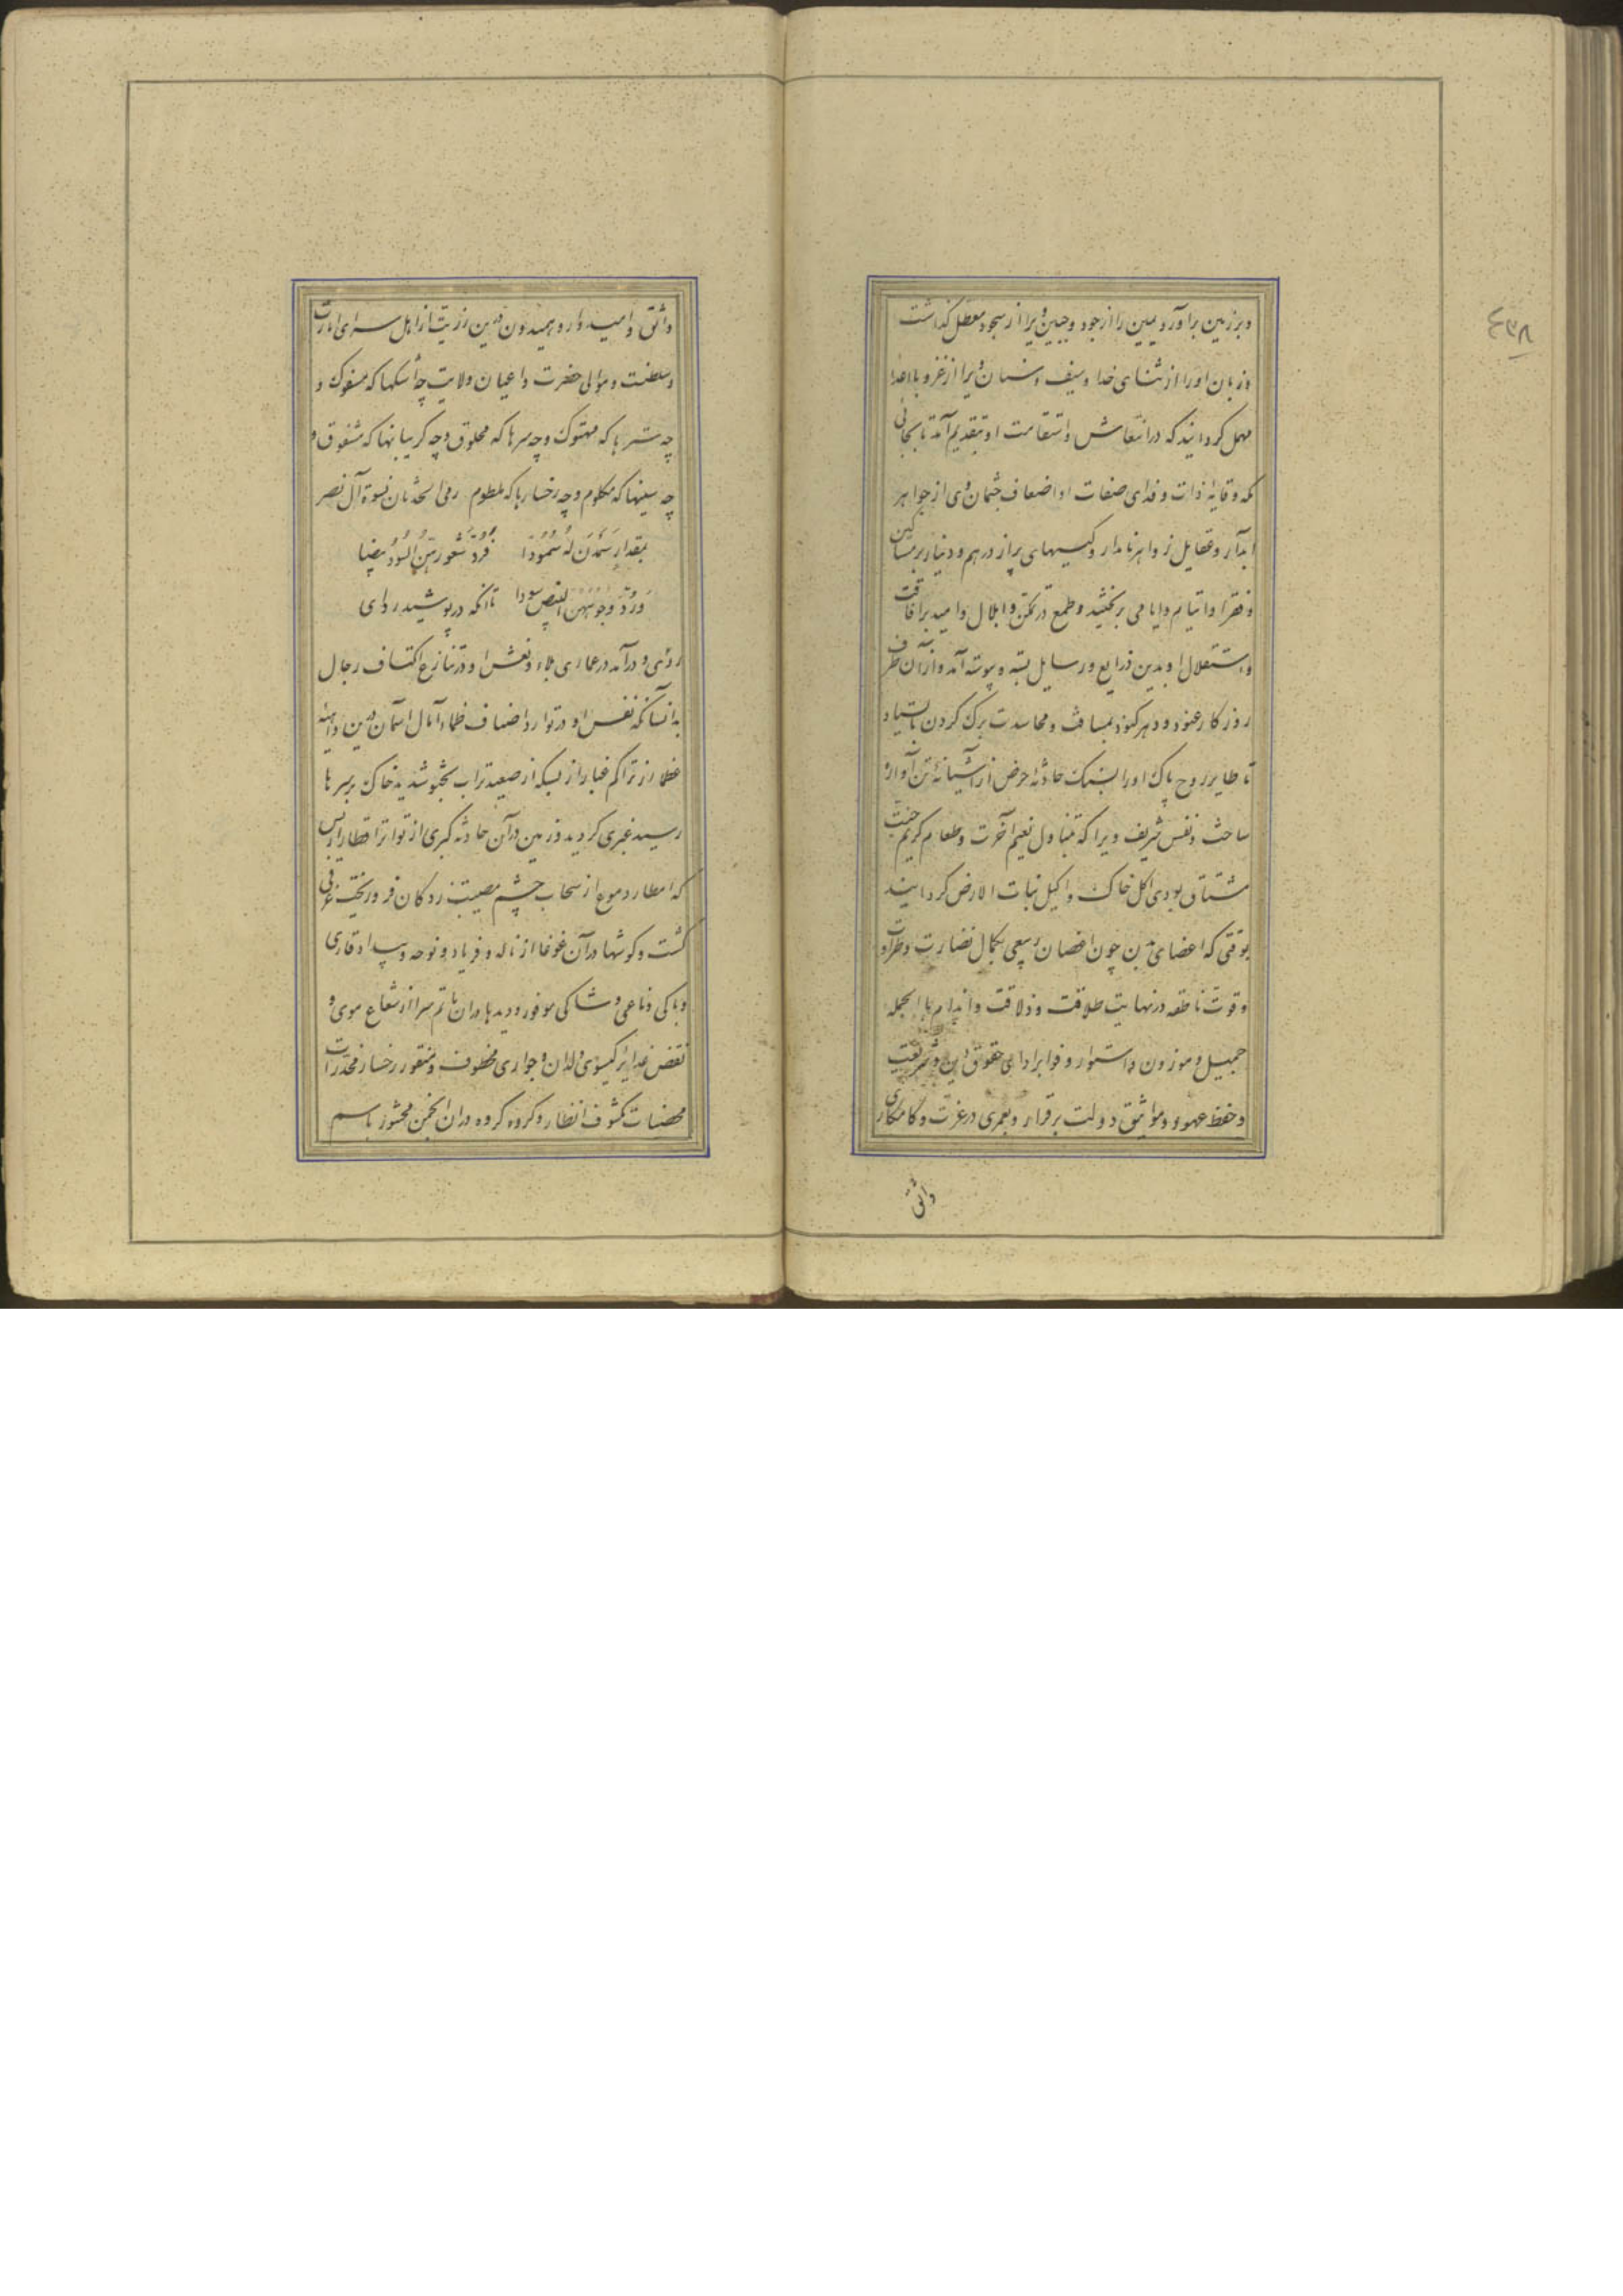 وبرزمین برآورد یمین را از جود و جبین ویرا از سجود معطل گذاشت
و زبان او را از ثنای خدا و سیف و سنان ویرا از غزو با اعدا
مهمل گردانید که در انتعاش و استقامت او بتقدیم آمد تا بجائی
که وقایهٔ ذات و فدای صفات او اضعاف جثمان وی از جواهر
آبدار و عقایل زواهر نامدار و کیسهای پر از درهم و دینار بر مساکین
و فقرا و ایتام و ایامی بر بخشید و طمع در تمکن و ابلال و امید بر افاقت
و استقلال او بدین ذرایع و رسایل بسته و پیوسته آمد و از آن طرف
روزگار عنود و دهر کنود بمسافت و محاسدت برک کردن با
تا طایر روح پاک او را بسنک حادثهٔ مرض از آشیانهٔ تن آواره
ساخت و نفس شریف ویرا که بتناول نعیم آخرت و طعام کریم جنت
مشتاق بودی اکل خاک و اکیل نبات الارض گردانید
بوقتی که اعضای بدن چون اغصان ربیعی بکمال نضارت و طراوت
و قوت ناطقه در نهایت طلاقت و ذلاقت و اندام بالجمله
جمیل و موزون و استوار و فوا بر ادای حقوق دین و شریعت
و حفظ عهود و مواثیق دولت برقرار و بعمری در عزت و کامکاری
واثق
واثق و امیدوار و همیدون درین رزیت از اهل سرای امارت
و سلطنت و موالی حضرت و اعیان ولایت چه اشکها که مسفوک و
چه سترها که مهتوک و چه سرها که محلوق و چه گریبانها که مشقوق و
چه سینها که مکلوم و چه رخسارها که ملطوم رمی الحدثان نسوة آل نصر
بمقدار سمدن له سمودا فرد شعورهن السود بیضا
ورد وجوههن البیض سودا تا آنکه در پوشید ردای
ردی و درآمد در عماری بلاء و نعش او در تنازع اکتساف رجال
بدانسانکه نفس او در توارد اضیاف ظماء آمال آسمان درین داهیهٔ
عظما از تراکم غبار از بسکه از صعید تراب بجو شدید خاک بر سرها
رسید غبری گردید و زمین در آن حادثه کبری از تواتر اقطار از بس
که امطار دموع از سحاب چشم مصیبت زدگان فرو ریخت غرقی
گشت و گوشها در آن غوغا از ناله و فریاد و نوحه و بیداد قاری
و باکی و ناعی و شاکی موفور و دیدها در ان ماتم سرا از شعاع موی و
نقض غدایر گیسوی ولدان و جواری مخطوف و منقور رخسار مخدرات
محصنات مکشوف انظار و گروه گروه در ان انجمن محشور باسم